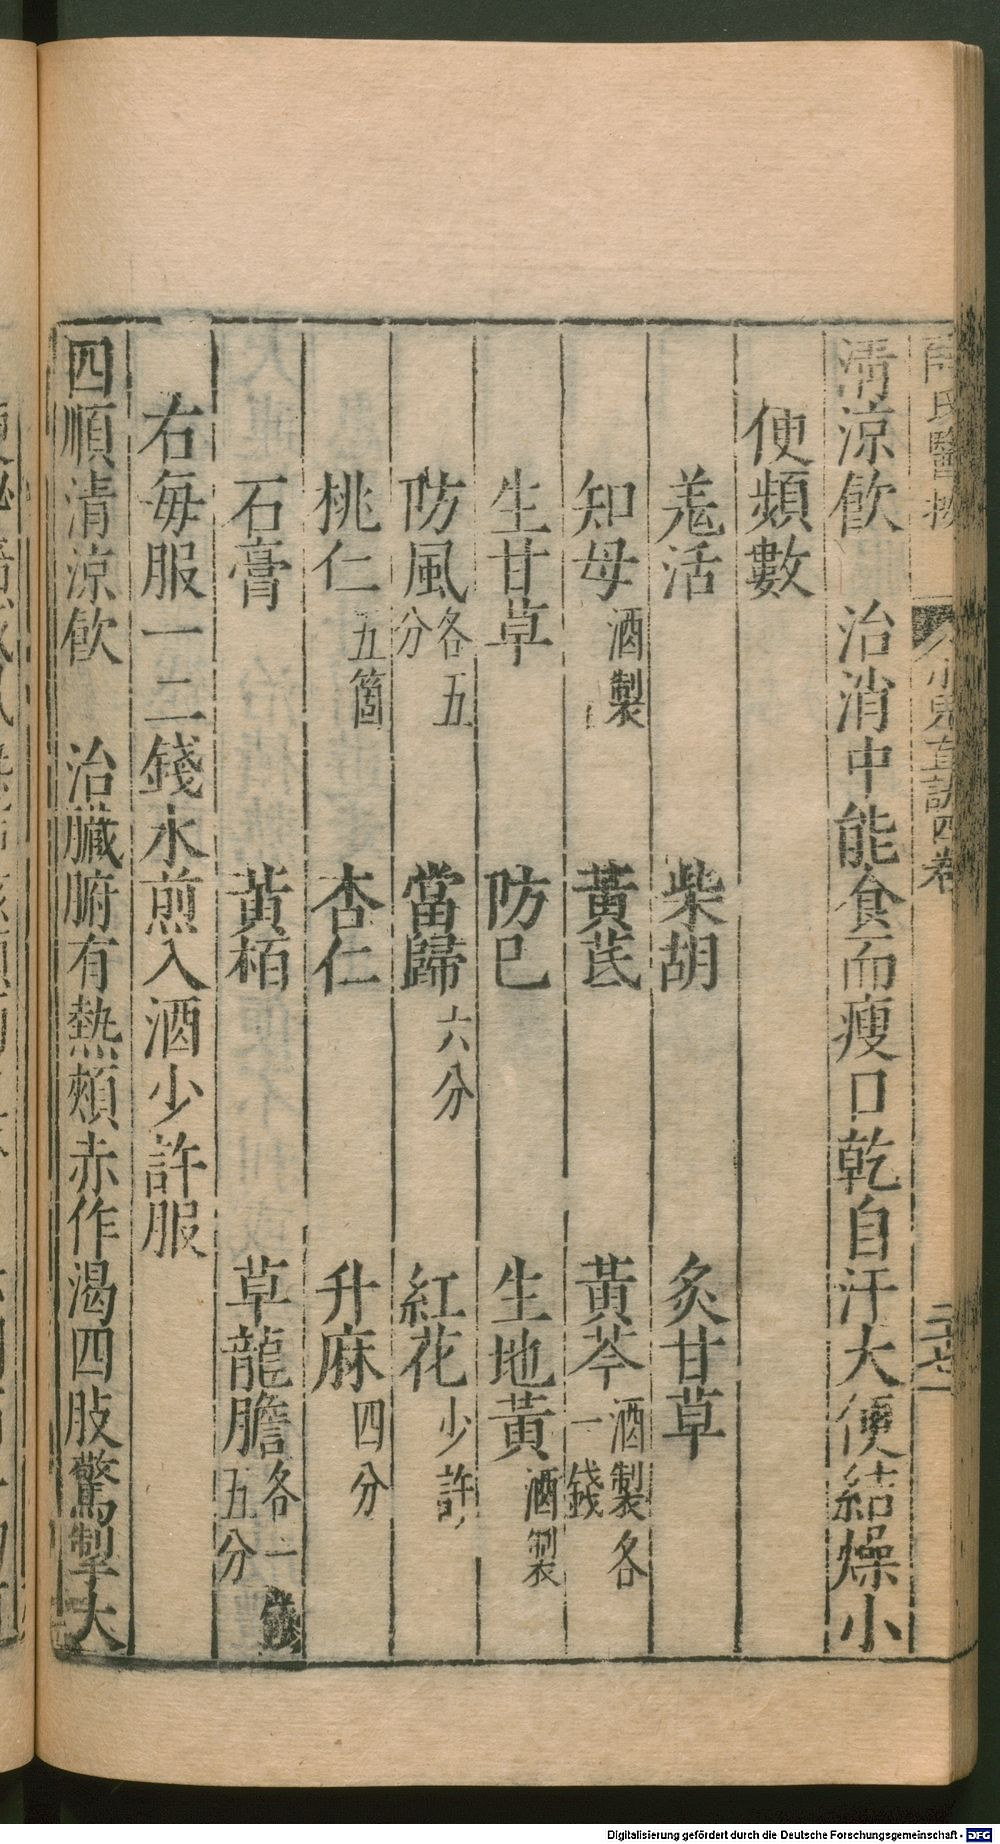 清涼飲　治消中能食而瘦口乾自汗大便結燥小
便頻數
羗活　柴胡　炙甘草
知母酒製　黃芪　黃芩酒製各一錢
生甘草　防巳　生地黃酒製
防風各五分　當歸六分　紅花少許
桃仁五箇　杏仁　升麻四分
石膏　黃栢　草龍膽各一錢五分
右毎服一二錢水煎入酒少許服
四順清涼飲　治臟腑有熱頰赤作渴四肢驚掣大
Digitalisierung gefördert durch die Deutsche Forschungsgemeinschaft - DFG